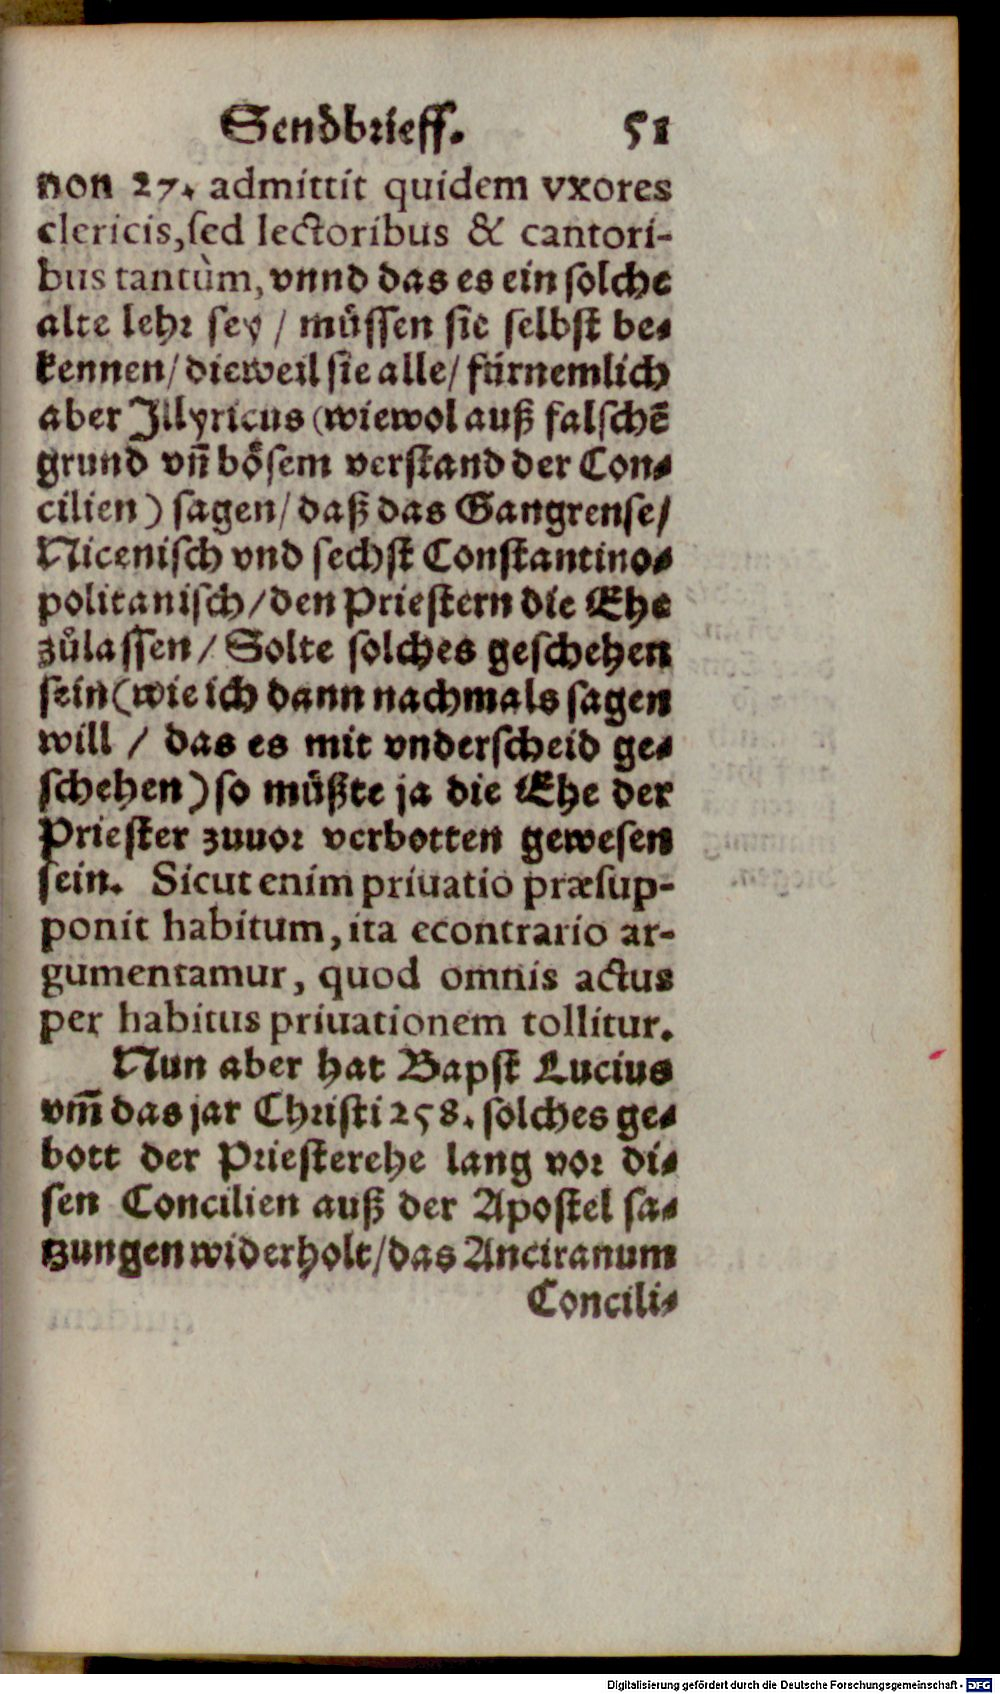 Sendbrieff. 51
non 27. admittit quidem vxores
clericis, sed lectoribus & cantori-
bus tantùm, vnnd das es ein solche
alte lehr sey / müssen sie selbst be-
kennen / dieweil sie alle / fürnemlich
aber Jllyricus (wiewol auß falschē
grund vn̄ bösem verstand der Con-
cilien) sagen / daß das Gangrense /
Nicenisch vnd sechst Constantino-
politanisch / den Priestern die Ehe
zůlassen / Solte solches geschehen
sein (wie ich dann nachmals sagen
will / das es mit vnderscheid ge-
schehen) so müßte ja die Ehe der
Priester zuuor verbotten gewesen
sein. Sicut enim priuatio præsup-
ponit habitum, ita econtrario ar-
gumentamur, quod omnis actus
per habitus priuationem tollitur.
Nun aber hat Bapst Lucius
vm̄ das jar Christi 258. solches ge-
bott der Priesterehe lang vor di-
sen Concilien auß der Apostel sa-
tzungen widerholt / das Anciranum
Concili-
Digitalisierung gefördert durch die Deutsche Forschungsgemeinschaft - DFG